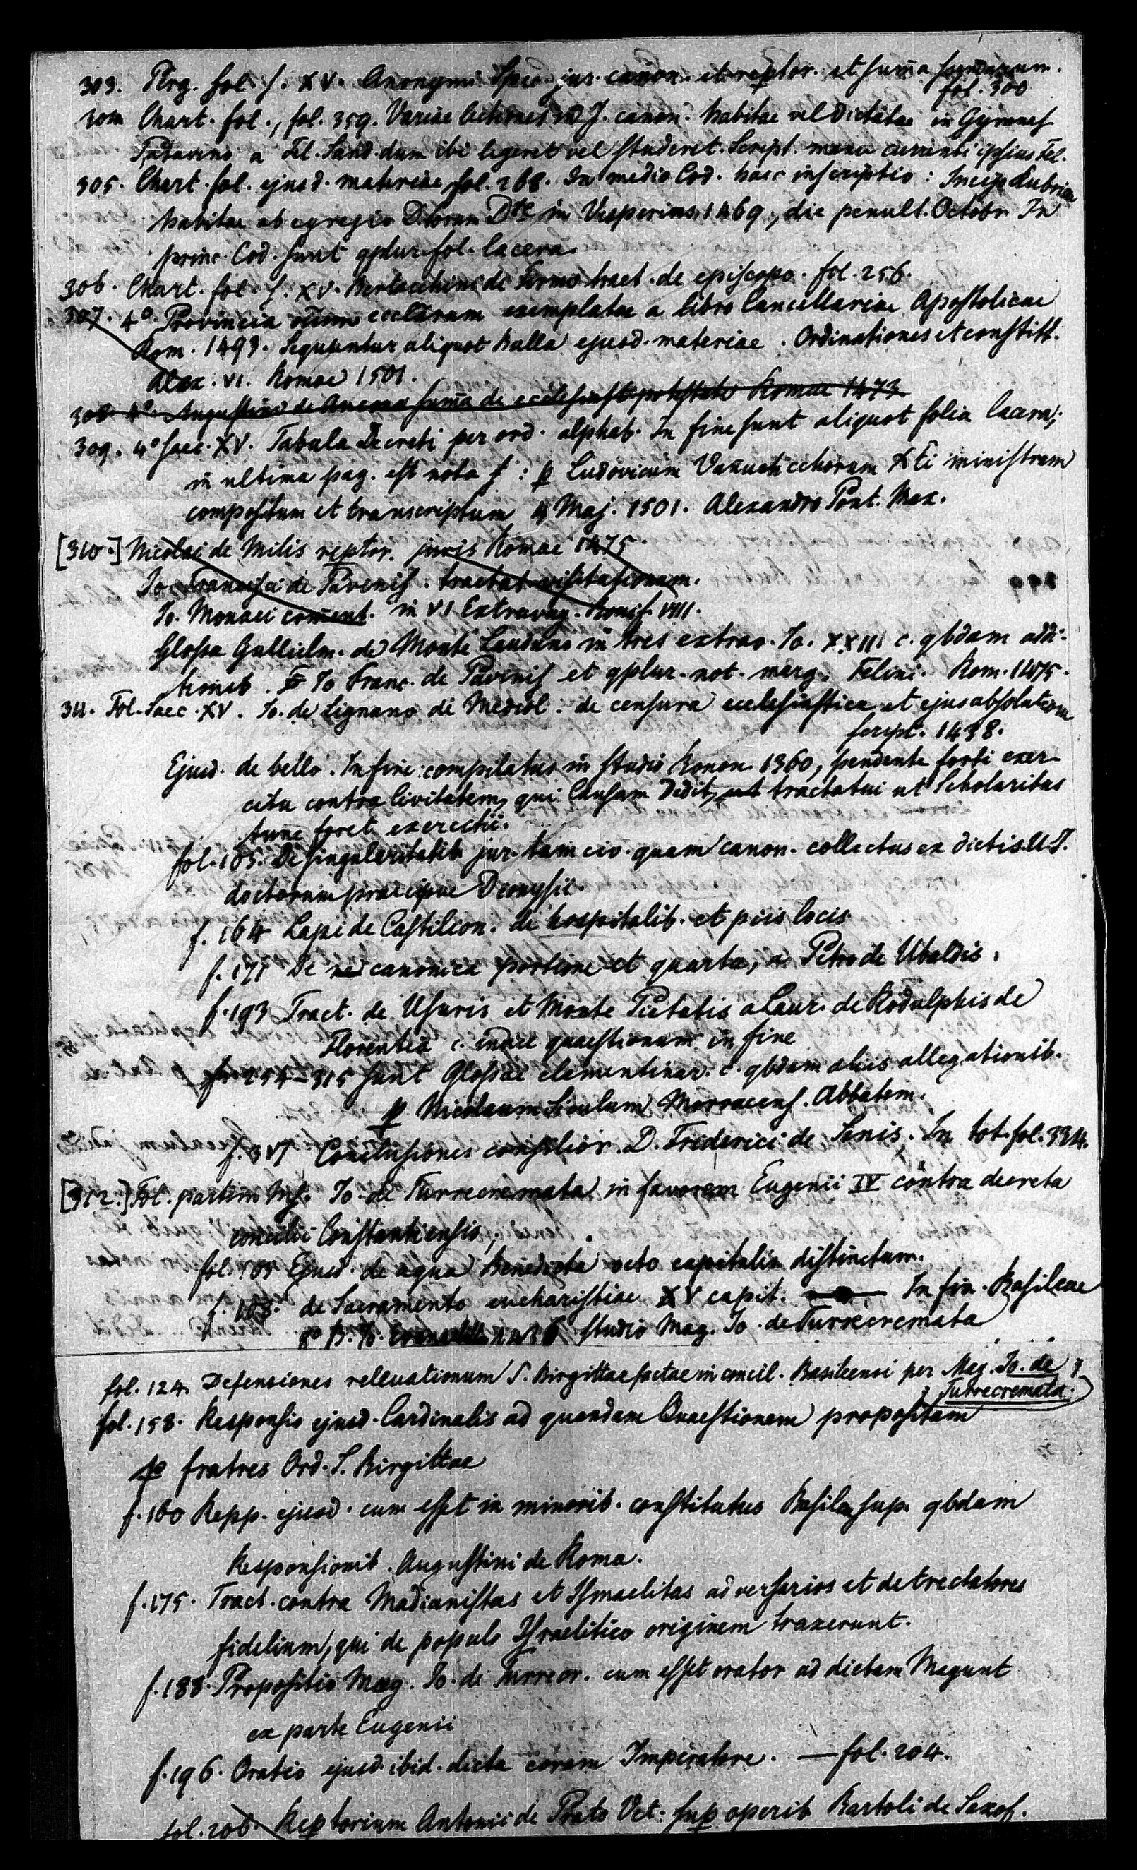 303. Perg. fol. f. XV. Anonymi Spec. jur. canon. et reptor. et suma
fol. 300
304 Chart. fol., fol. 359. Variae lectiones in J. canon. habitae vel dictatae in Gymnas
Patavino a Fel. Sand. dum ibi legeret vel studeret. Script. manu currenti ipsius Fel.
305. Chart. fol. ejusd. materiae, fol. 268. In medio Cod. haec inscriptio:
habitae ab egregio Dre in Vesperinis 1469, die penult. Octobr. In
princ. Cod. sunt qplur. fol. lacera.
306. Chart. fol. f. XV. Bertacchinus de Firmo tract. de episcopo. fol. 256.
307. 4o Provincia omnium ecclarum exemplatae a libro Cancellariae Apostolicae
Rom. 1493. Sequuntur aliquot bulla ejusd. materiae. Ordinationes et constitt.
Alex. VI. Romae 1501.
308. 4o Augustino de Ancona suma de ecclesiast. potestate Romae 1473
309. 4o saec. XV. Tabula Decreti per ord. alphab. In fine sunt aliquot folia lacera;
in ultima pag. est nota f: p Ludovicum cchoram Xti ministrum
compositum et transcriptum 4 Maj. 1501. Alexandro Pont. Max.
[310.] Nicolai de Milis reptor. juris Romae 1475
Jo. Francisci de Pavinis. tractat. visitationum.
Jo. Monaci coment. in VI Extravag. Bonif. VIII.
Glossa Guillielm. de Monte Lauduno in tres extrav. Jo. XXII. c. qbdam addi-
tionib. Jo Franc. de Pavinis et qplur. not. marg. Felini. Rom. 1475.
311. Fol. saec. XV. Jo. de Lignano di Mediol. de censura ecclesiastica et ejus absolutione
script. 1438.
Ejusd. de bello. In fine: compilatus in studio Bonon. 1360, pendente forti exer-
citu contra Civitatem, qui causam dedit tractatui ut Scholaritas
tunc foret exercitii.
fol. 105. De singularitatib. jur. tam civ. quam canon. collectus ex dictis
doctorum praecipue Dionysii
f. 164 Lapi de Castilion. de hospitalib. et piis locis
f. 177 De canonica portione et quarta, a Petro de Ubaldis.
f. 193 Tract. de Usuris et Monte Pietatis a Laur. de Rodulphis de
Florentia c. indice quaestionum in fine
fr. 254-315 sunt Glossae clementinar. c. qbdam aliis allegationib.
p Nicolaum Siculum Abbatem.
f. 317 Conclusiones consilior. D. Frederici de Senis. In tot. fol. 334.
[312.] Fol. partim Ms. Jo. de Turrecremata in favorem Eugenii IV contra decreta
concilii Constantiensis,
fol. 105 Ejusd. de aqua Benedicta octo capitalia distinctum.
f. 108. de Sacramento eucharistiae XV capit. In fin. Basileae
1436 studio Mag. Jo. de Turrecremata
fol. 124. Defensiones rellevationum S. Birgittae factae in concil. Basileensi per Mag. Jo. de
Turrecremata.
fol. 158. Responsio ejusd. Cardinalis ad quandam Quaestionem propositam
p fratres Ord. S. Birgittae
f. 160 Repp. ejusd. cum esset in minorib. constitutus Basileae sup. qbdam
Responsionib. Augustini de Roma.
f. 175. Tract. contra Madianistas et Ismaelitas adversarios et detrectatores
fidelium, qui de populo Israelitico originem traxerunt.
f. 188. Propositio Mag. Jo. de Turrecr. cum esset orator ad dietam Magunt
ex parte Eugenii
f. 196. Oratio ejusd. ibid. dicta coram Imperatore. — fol. 204.
fol. 206. Reptorium Antonii de Prato Vet: sup operib. Bartoli de Saxof.